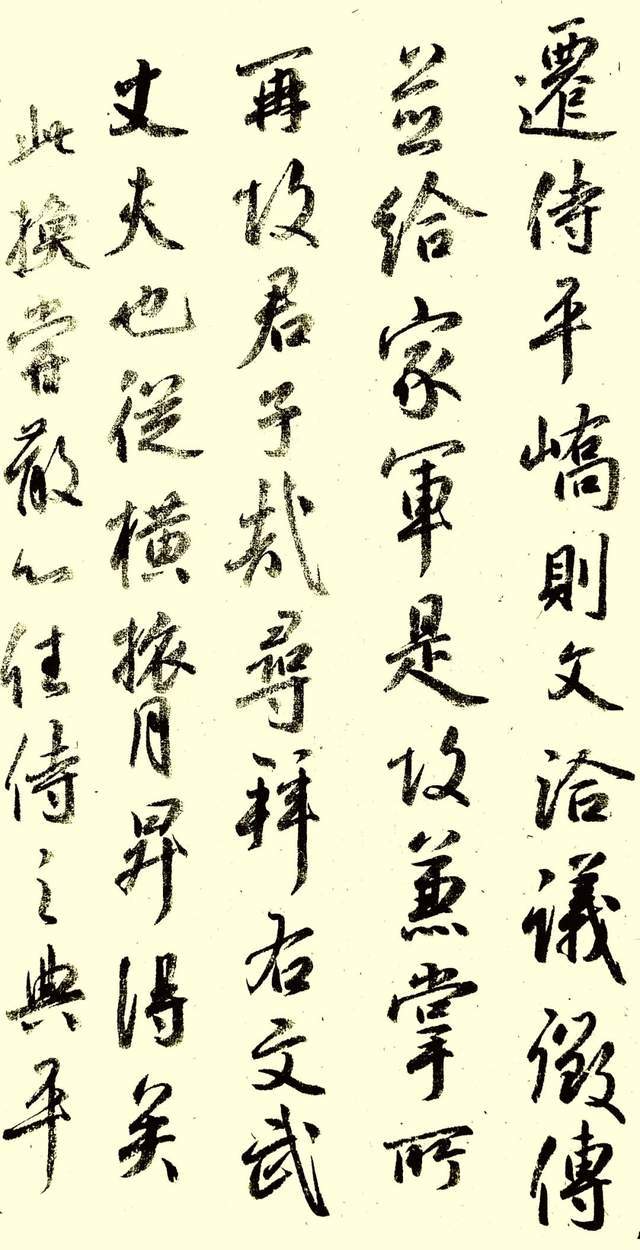 遷侍平嶠則文洽議徵傳
並給家軍是故兼掌所
再故君子哉尋拜右文武
丈夫也從橫掖月昇得矣
此換當散心任侍之典平